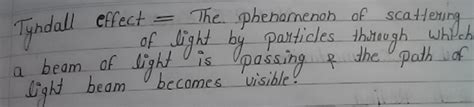 Tyndall effect = The phenomenon of scattering
of light by particles through which
a beam of light is passing & the path of
light beam becomes visible.